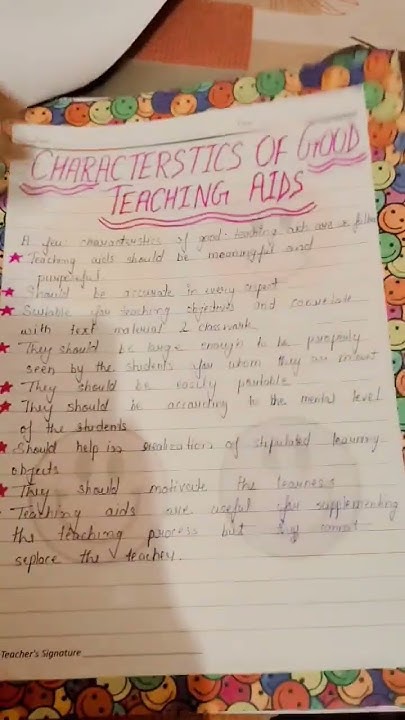 CHARACTERSTICS OF GOOD
TEACHING AIDS
A few characteristics of good teaching aids are as follow
★ Teaching aids should be meaningful and
purposeful
★ Should be accurate in every aspect
★ Suitable for teaching objectives and correlate
with text material & classwork
★ They should be large enough to be properly
seen by the students for whom they are meant
★ They should be easily portable
★ They should be according to the mental level
of the students
★ Should help in realization of stipulated learning
objects
★ They should motivate the learners
Teaching aids are useful for supplementing
the teaching process but they cannot
replace the teacher.
Teacher's Signature